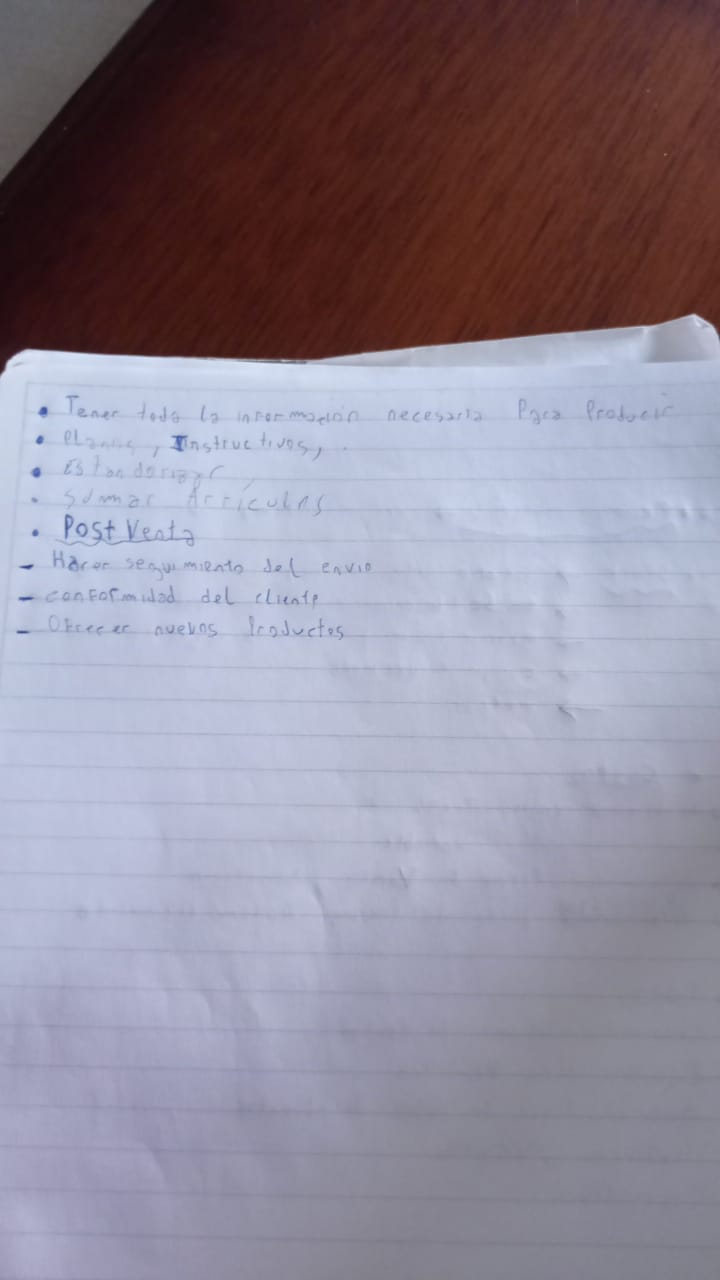 • Tener toda la información necesaria Para Producir
• Planos, Instructivos,
• Estandarizar
• Sumar Articulos
• Post Venta
- Hacer seguimiento del envio
- conformidad del cliente
- Ofrecer nuevos Productos